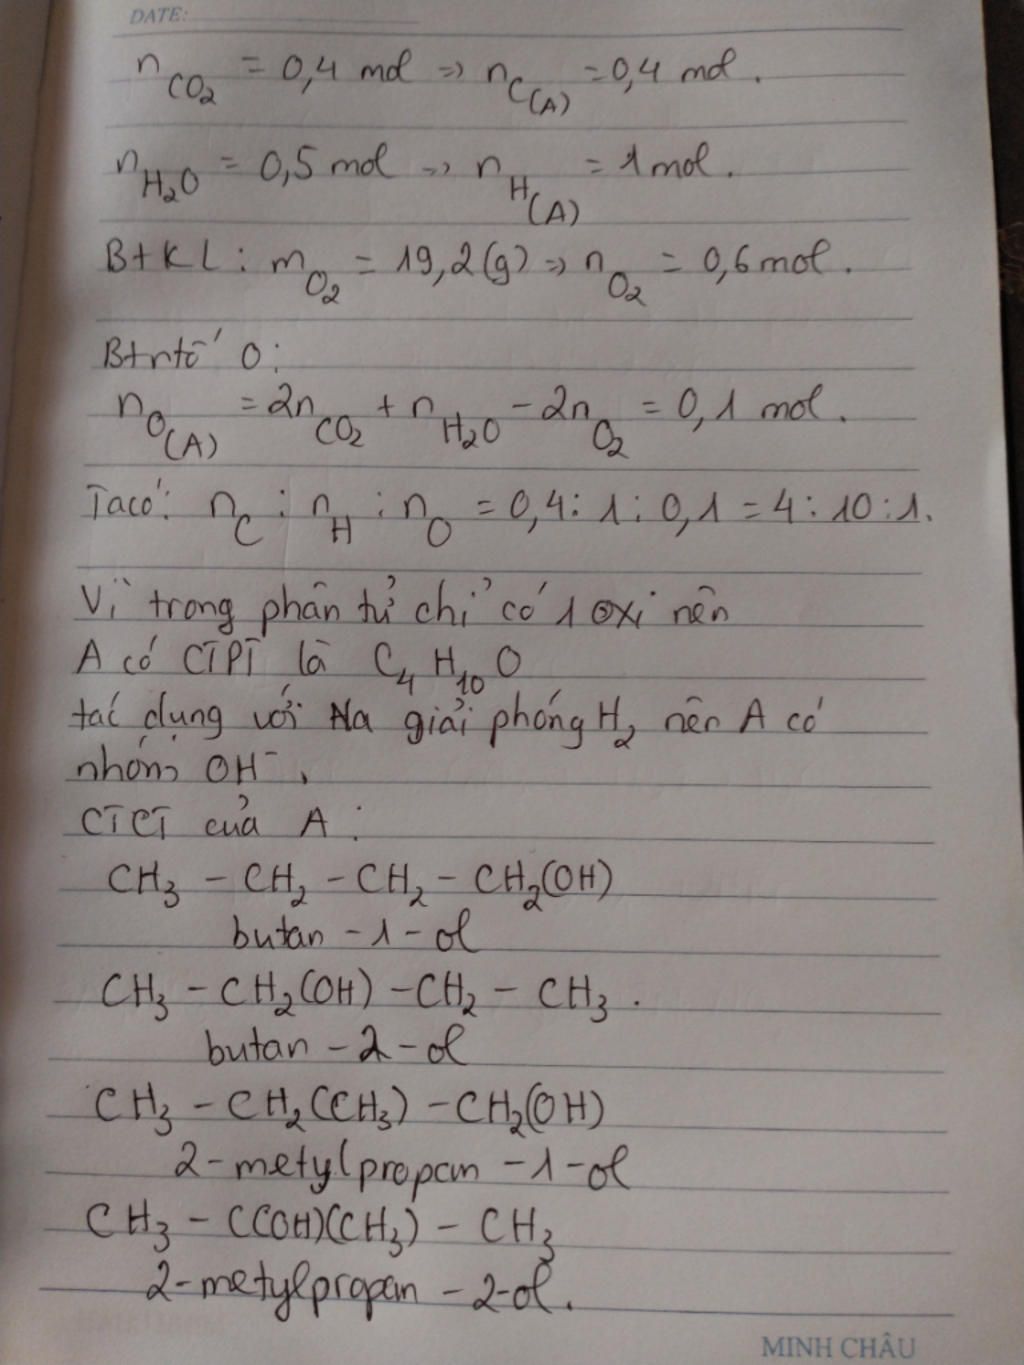 DATE:
n CO₂ = 0,4 mol => n C(A) = 0,4 mol.
n H₂O = 0,5 mol => n H(A) = 1 mol.
BtKL: m O₂ = 19,2 (g) => n O₂ = 0,6 mol.
Btntố O:
n O(A) = 2n CO₂ + n H₂O - 2n O₂ = 0,1 mol.
Ta có: n C : n H : n O = 0,4 : 1 : 0,1 = 4 : 10 : 1.
Vì trong phân tử chỉ có 1 oxi nên
A có CTPT là C₄H₁₀O
tác dụng với Na giải phóng H₂ nên A có
nhóm OH⁻.
CTCT của A:
CH₃ - CH₂ - CH₂ - CH₂(OH)
butan - 1 - ol
CH₃ - CH₂(OH) - CH₂ - CH₃.
butan - 2 - ol
CH₃ - CH₂(CH₃) - CH₂(OH)
2-metylpropan - 1 - ol
CH₃ - C(OH)(CH₃) - CH₃
2-metylpropan - 2-ol.
MINH CHÂU